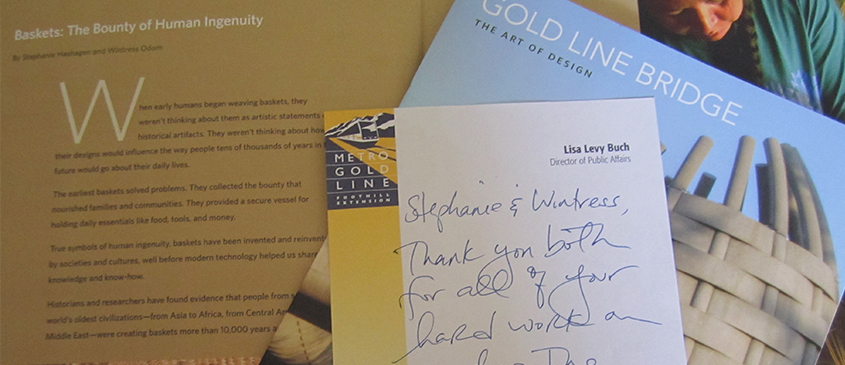 Baskets: The Bounty of Human Ingenuity
By Stephanie Hashagen and Wintress Odom
When early humans began weaving baskets, they
weren't thinking about them as artistic statements
historical artifacts. They weren't thinking about how
their designs would influence the way people tens of thousands of years in
future would go about their daily lives.
The earliest baskets solved problems. They collected the bounty that
nourished families and communities. They provided a secure vessel for
holding daily essentials like food, tools, and money.
True symbols of human ingenuity, baskets have been invented and reinvent
by societies and cultures, well before modern technology helped us share
knowledge and know-how.
Historians and researchers have found evidence that people from
world's oldest civilizations—from Asia to Africa, from Central Am
Middle East—were creating baskets more than 10,000 years a
GOLD LINE BRIDGE
THE ART OF DESIGN
METRO
GOLD
LINE
FOOTHILL
EXTENSION
Lisa Levy Buch
Director of Public Affairs
Stephanie & Wintress,
Thank you both
for all of your
hard work on
The